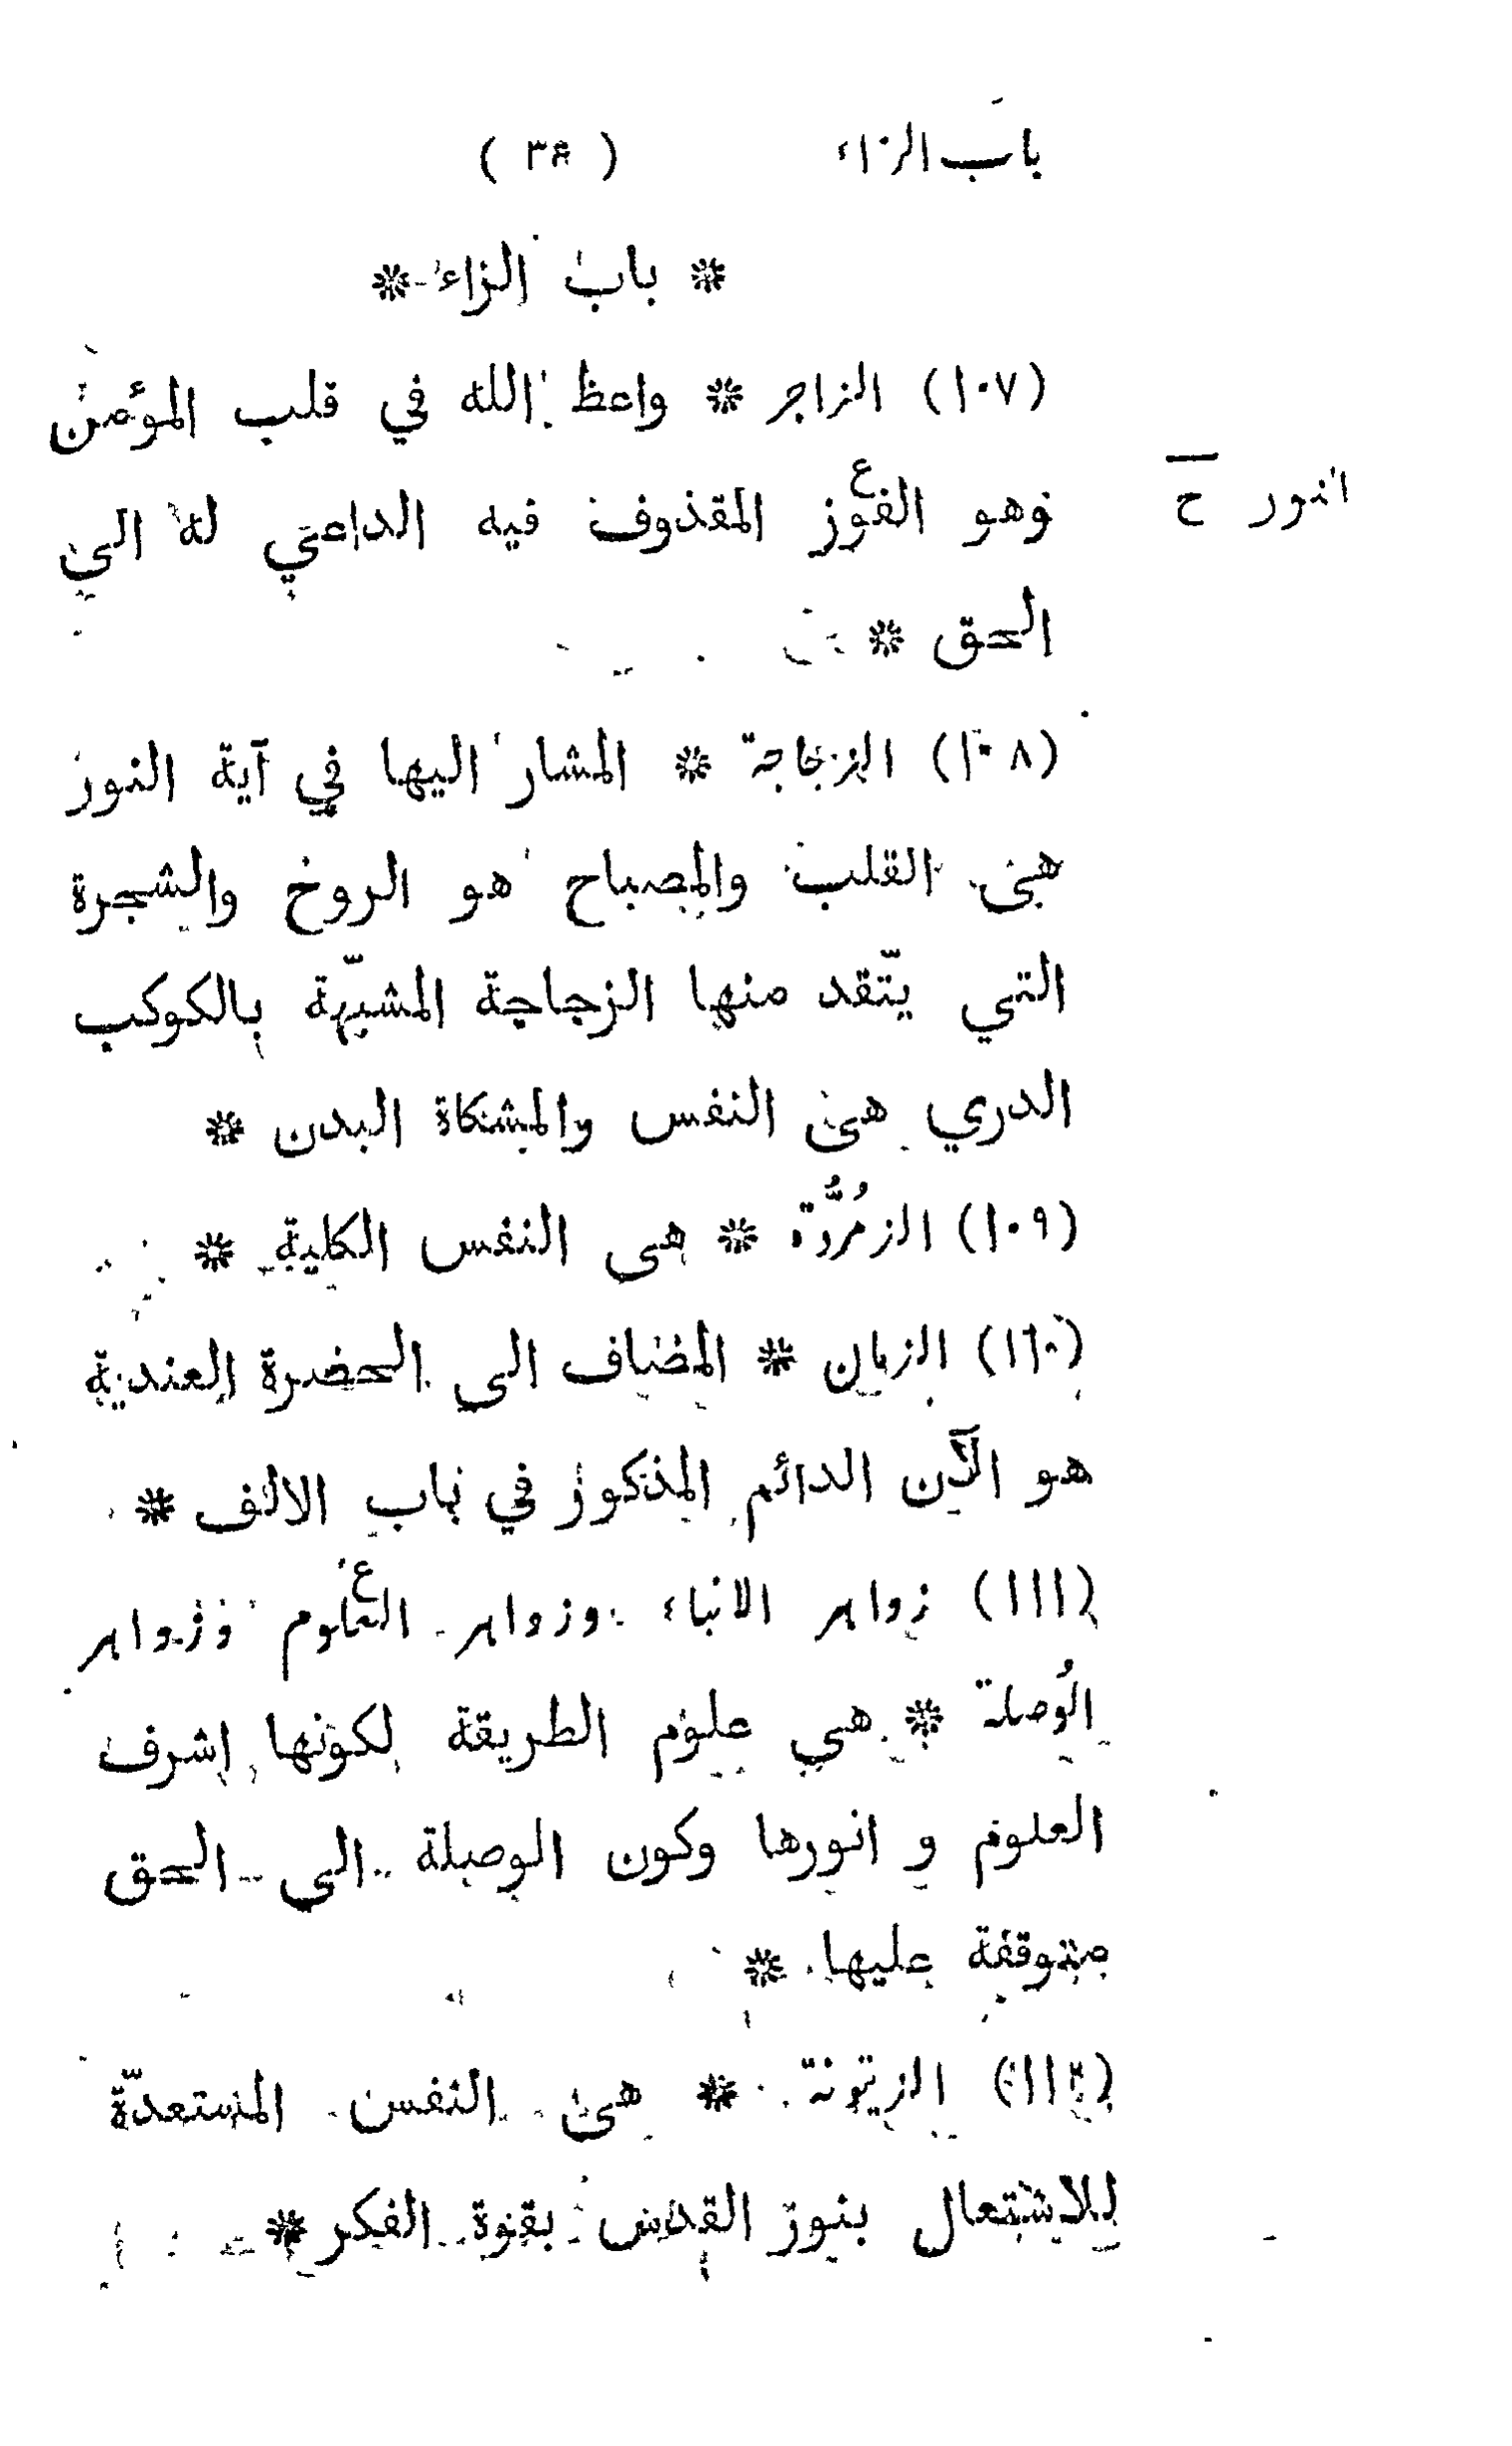 باب الزاء ( ٣٥ )
* باب الزاء *
(١٠٧) الزاجر * واعظ الله في قلب المؤمن
وهو الفوز ع المقذوف فيه الداعي له الى
النور ح
الحق *
(١٠٨) الزجاجة * المشار اليها في آية النور
هى القلب والمصباح هو الروح والشجرة
التي يتّقد منها الزجاجة المشبّهة بالكوكب
الدري هى النفس والمشكاة البدن *
(١٠٩) الزمُرُّدة * هى النفس الكلية *
(١١٠) الزمان * المضاف الى الحضرة العندية
هو الآن الدائم المذكور في باب الالف *
(١١١) زواهر الانباء وزواهر العلوم ع وزواهر
الوُصلة * هي علوم الطريقة لكونها اشرف
العلوم و انورها وكون الوصلة الى الحق
متوقفة عليها *
(١١٢) الزيتونة * هى النفس المستعدّة
للاشتعال بنور القدس بقوة الفكر *